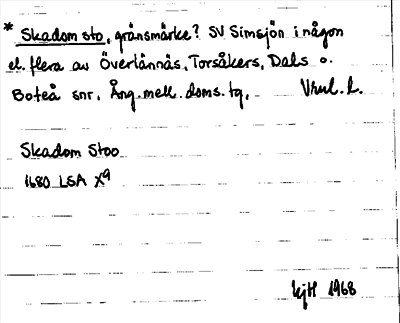 * Skadom sto, gränsmärke? SV Simsjön i någon
el. flera av Överlännäs, Torsåkers, Dals o.
Boteå snr. Ång. mell. doms. tg.
Skadom Stoo
1680 LSA X9
kjH 1968